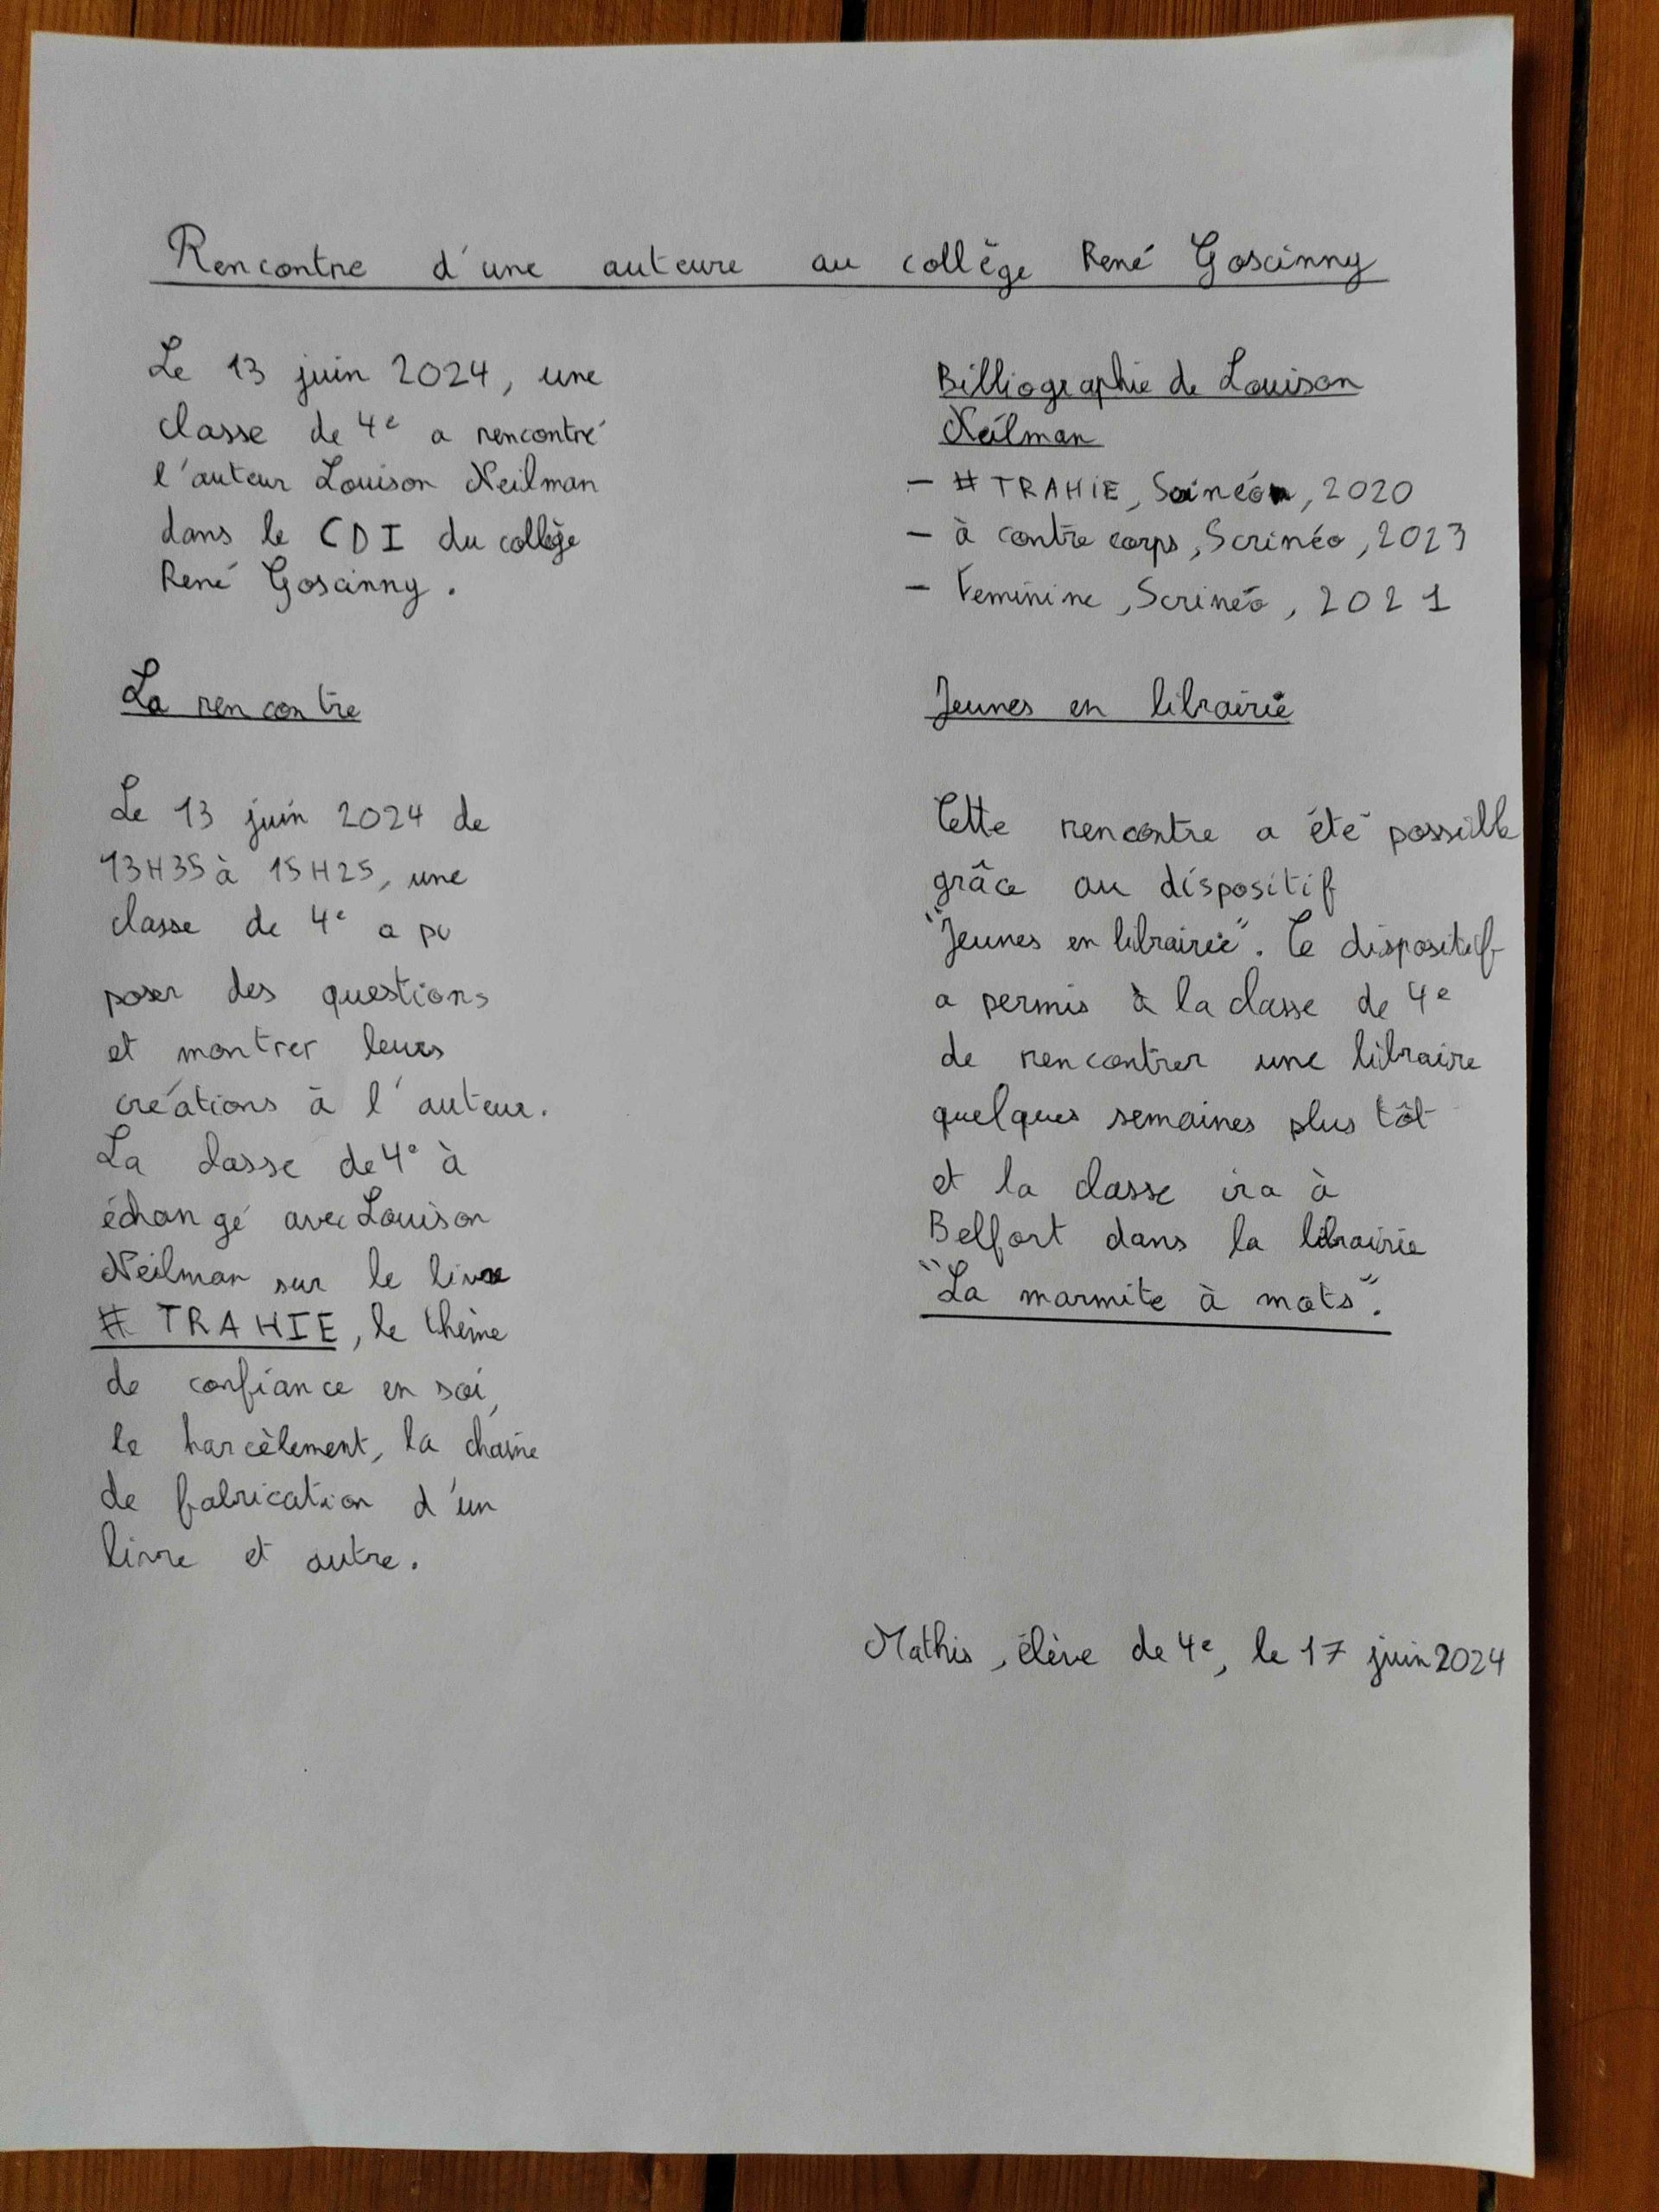 Rencontre d'une auteure au collège René Goscinny
Le 13 juin 2024, une
classe de 4e a rencontré
l'auteur Louison Neilman
dans le CDI du collège
René Goscinny.
La rencontre
Le 13 juin 2024 de
13H35 à 15H25, une
classe de 4e a pu
poser des questions
et montrer leurs
créations à l'auteur.
La classe de 4e à
échangé avec Louison
Neilman sur le livre
# TRAHIE, le thème
de confiance en soi,
le harcèlement, la chaîne
de fabrication d'un
livre et autre.
Billiographie de Louison
Neilman
- # TRAHIE, 2020
- à contre corps, Scrinéo, 2023
- Feminine, Scrinéo, 2021
Jeunes en librairie
Cette rencontre a été possible
grâce au dispositif
"Jeunes en librairie". Ce dispositif
a permis à la classe de 4e
de rencontrer une libraire
quelques semaines plus tôt
et la classe ira à
Belfort dans la librairie
"La marmite à mots".
Mathis, élève de 4e, le 17 juin 2024